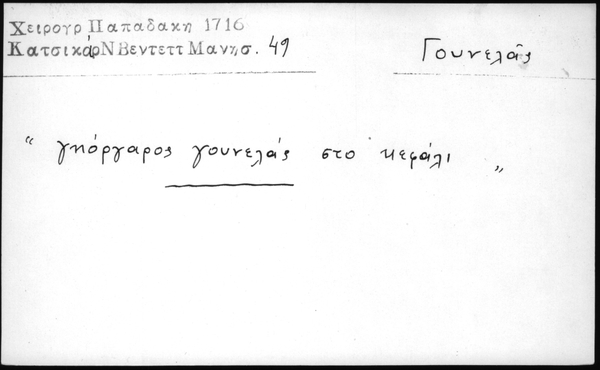 Χειρογρ Παπαδακη 1716
ΚατσικάρΝΒεντεττΜανησ. 49
Γουνελᾶς
“ γιιόργαρος γουνελάς στο κεφάλι „